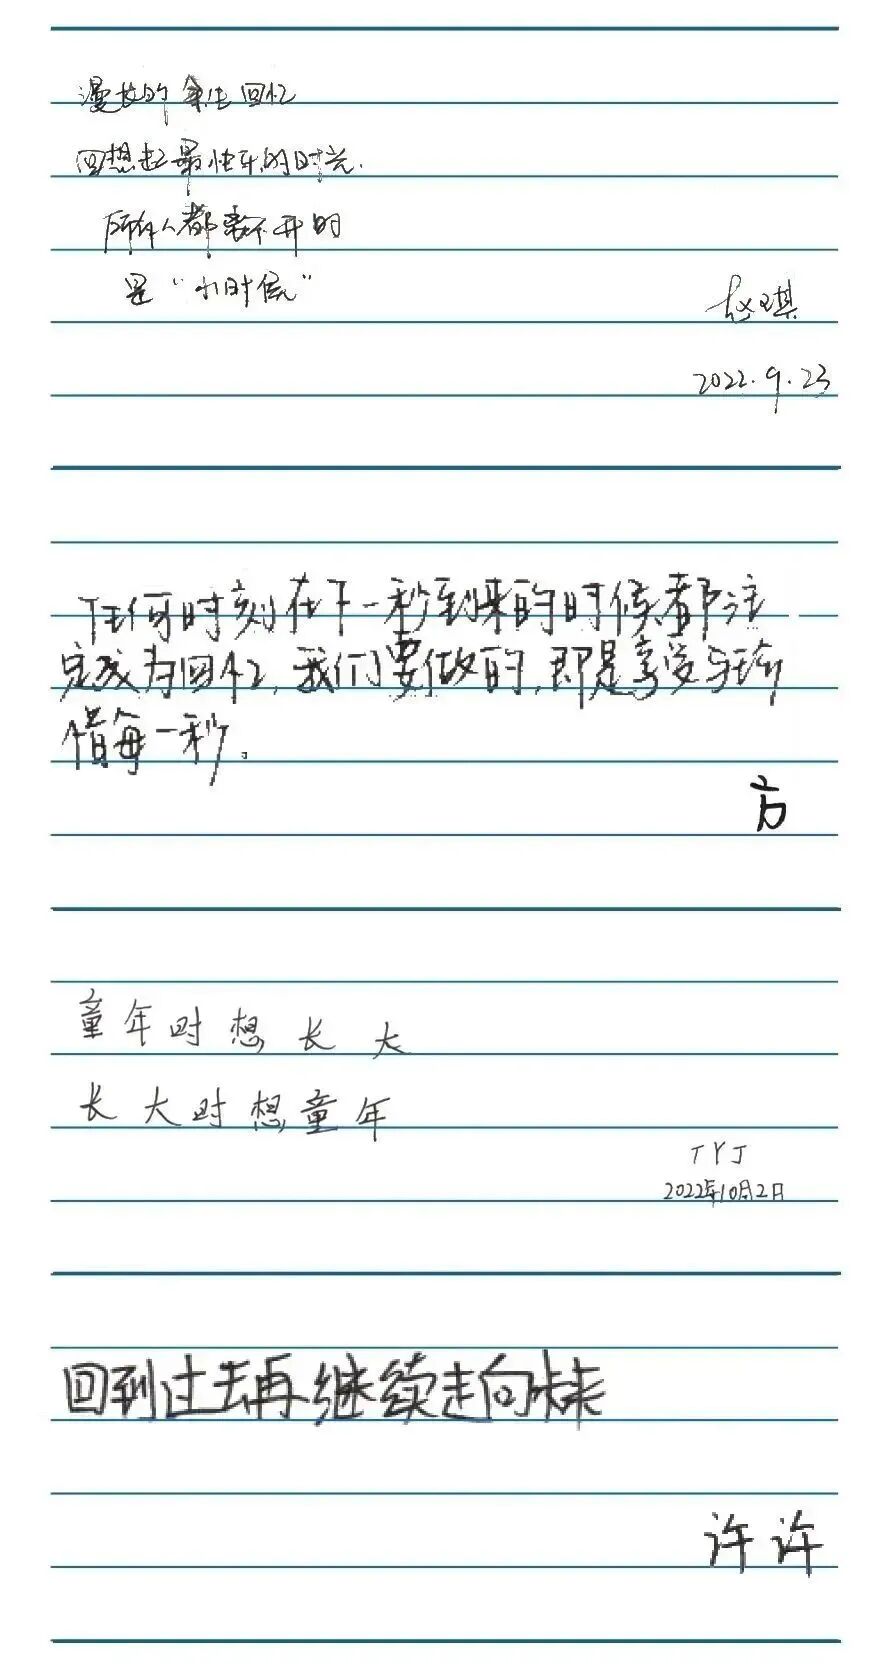 漫长的余生回忆
回想起最快乐的时光.
所有人都离不开的
是“小时候”
赵琪
2022.9.23
任何时刻在下一秒到来的时候都注
定成为回忆,我们要做的,即是享受与珍
惜每一秒。
方
童年时想长大
长大时想童年
TYJ
2022年10月2日
回到过去再继续走向未来
许许